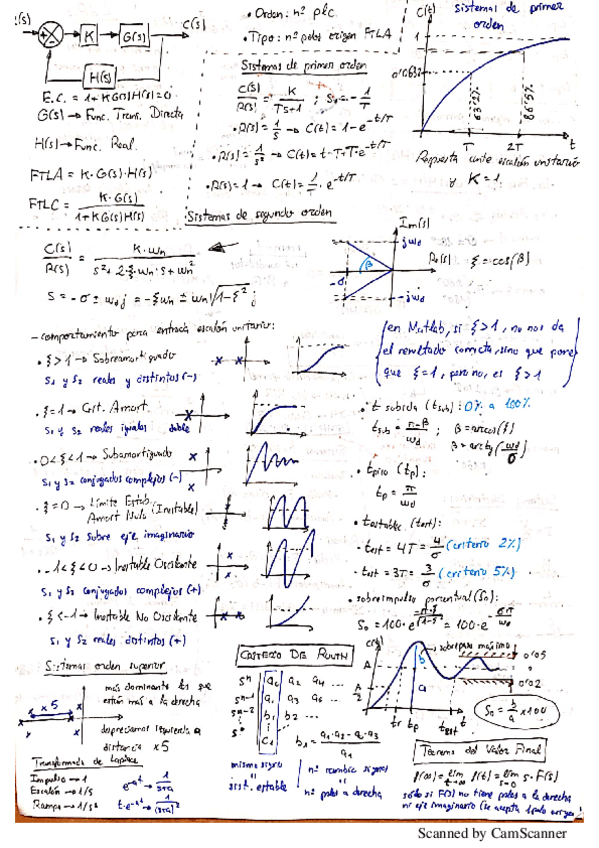 C(s)
K
G(s)
H(s)
E.C. = 1+KG(s)H(s)=0
G(s) → Func. Trans. Directa
H(s) → Func. Real.
FTLA = K·G(s)·H(s)
FTLC = K·G(s) / 1+KG(s)H(s)
• Orden: nº plc
• Tipo: nº polos origen FTLA
Sistemas de primer orden
C(s)/R(s) = K/Ts+1 ; S₁ = -1/T
• R(s)= 1/s → C(t)= 1-e^-t/T
• R(s)= 1/s² → C(t)= t-T+T·e^-t/T
• R(s)=1 → C(t)= 1/T · e^-t/T
C(t)
sistemas de primer
orden
1
0'632
63'2%
86'5%
T
2T
t
Respuesta ante escalón unitario
y K=1
Sistemas de segundo orden
C(s)/R(s) = K·ωn / s²+2·ξ·ωn·s+ωn²
S = -σ ± ωd j = -ξωn ± ωn√1-ξ² j
Im(s)
jωd
β
Re(s)
ξ=cos(β)
-σ
-jωd
- comportamiento para entrada escalón unitario:
• ξ>1 → Sobreamortiguado
S1 y S2 reales y distintos (-)
• ξ=1 → Crit. Amort.
S1 y S2 reales iguales
doble
• 0<ξ<1 → Subamortiguado
S1 y S2 conjugados complejos (-)
• ξ=0 → Límite Estab. (Inestable)
Amort Nulo
S1 y S2 sobre eje imaginario
• -1<ξ<0 → Inestable Oscilante
S1 y S2 conjugados complejos (+)
• ξ<-1 → Inestable No Oscilante
S1 y S2 reales distintos (+)
en Matlab, si ξ>1, no nos da
el resultado correcto, sino que pone
que ξ=1, pero no, es ξ>1
• t subida (tsub): 0% a 100%
tsub = π-β/ωd ; β=arcos(ξ)
β=arctg(ωd/σ)
• tpico (tp):
tp = π/ωd
• testablec (test):
- test = 4T = 4/σ (criterio 2%)
- test = 3T = 3/σ (criterio 5%)
• sobreimpulso porcentual (So):
So = 100·e^-π·ξ/√1-ξ² = 100·e^-σπ/ωd
Sistemas orden superior
x5
más dominante los que
están más a la derecha
despreciamos izquierda a
distancia x5
Transformada de Laplace
Impulso → 1
Escalón → 1/s
Rampa → 1/s²
e^-at → 1/s+a
t·e^-at → 1/(s+a)²
CRITERIO DE ROUTH
sⁿ a₀ a₂ a₄ ...
sⁿ⁻¹ a₁ a₃ a₅ ...
sⁿ⁻² b₁ b₂ ...
s⁰ c₁
b₁ = a₁·a₂-a₀·a₃ / a₁
mismo signo
"
sist. estable
nº cambio signos
"
nº polos a derecha
c(t)
sobrepaso máximo
0'05
0'02
b
a
tr
tp
test
t
So = b/a x100
Teorema del Valor Final
f(∞) = lim t→∞ f(t) = lim s→0 s·F(s)
sólo si F(s) no tiene polos a la derecha
ni eje imaginario (se acepta 1 polo origen)
Scanned by CamScanner